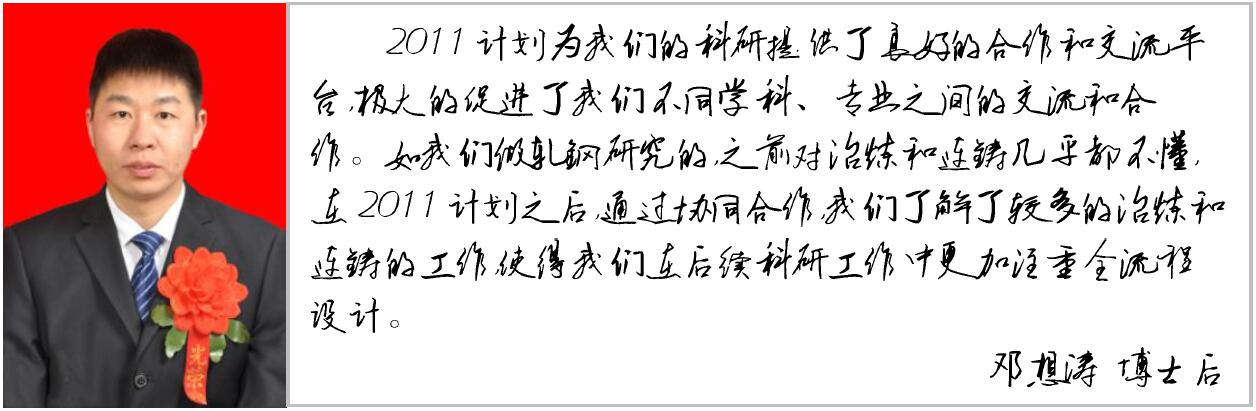 2011 计划为我们的科研提供了良好的合作和交流平
台,极大的促进了我们不同学科、专业之间的交流和合
作。如我们做轧钢研究的,之前对冶炼和连铸几乎都不懂,
在 2011 计划之后,通过协同合作,我们了解了较多的冶炼和
连铸的工作,使得我们在后续科研工作中更加注重全流程
设计。
邓想涛 博士后
光荣